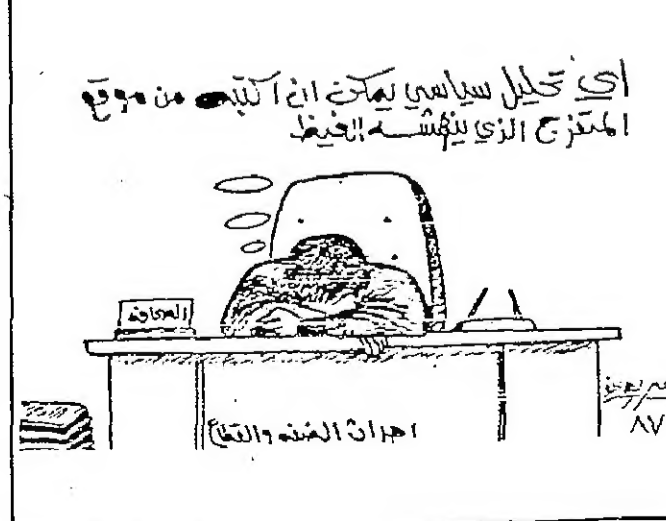 اي تحليل سياسي يمكن ان اكتبه من موقع
المتفرج الذي ينهشه الغيظ
الصحافه
احداث الضفه والقطاع
٨٧